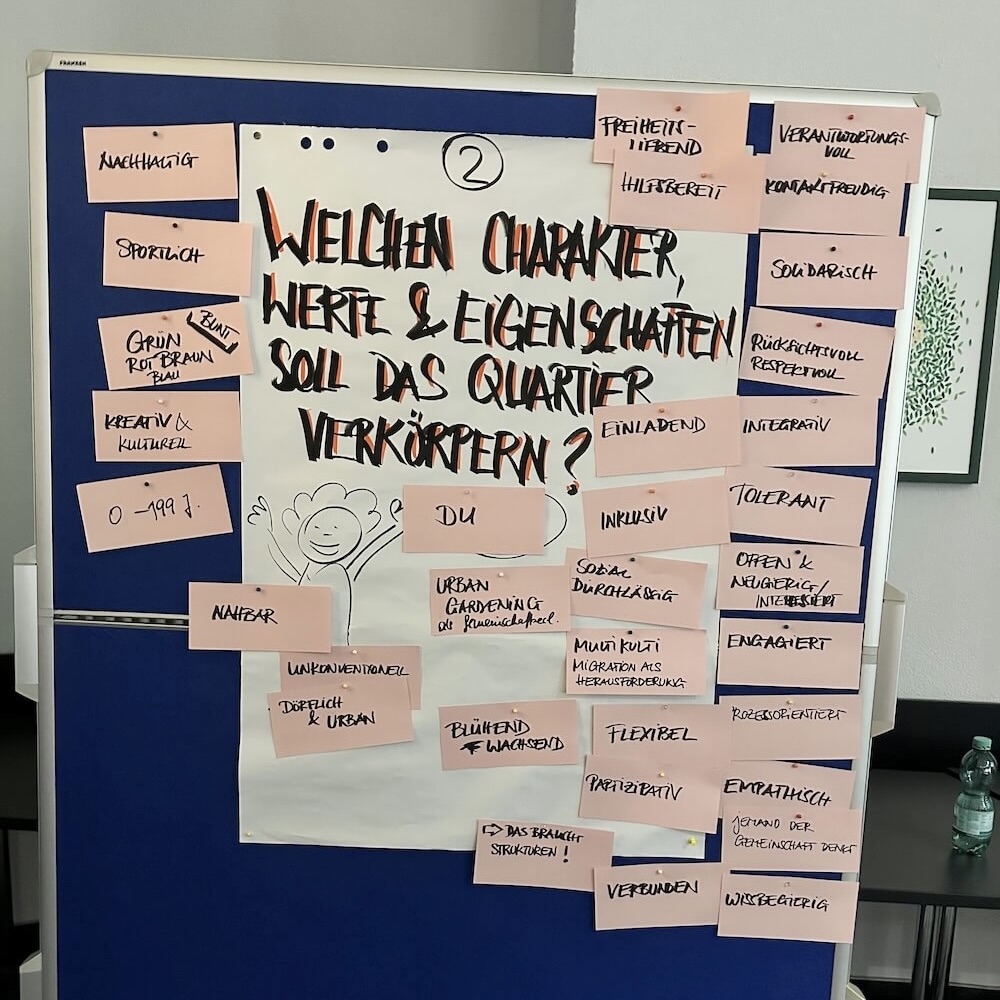 FRANKEN
2
WELCHEN CHARAKTER,
WERTE & EIGENSCHAFTEN
SOLL DAS QUARTIER
VERKÖRPERN?
NACHHALTIG
SPORTLICH
BUNT
GRÜN
ROT BRAUN
BLAU
KREATIV &
KULTURELL
0 – 199 J.
NAHBAR
UNKONVENTIONELL
DÖRFLICH
& URBAN
DU
URBAN
GARDENING
als
BLÜHEND
WACHSEND
⇨ DAS BRAUCHT
STRUKTUREN!
FREIHEITS-
LIEBEND
HILFSBEREIT
EINLADEND
INKLUSIV
SOZIAL
DURCHLÄSSIG
MULTIKULTI
MIGRATION ALS
HERAUSFORDERUNG
FLEXIBEL
PARTIZIPATIV
VERBUNDEN
VERANTWORTUNGS-
VOLL
KONTAKTFREUDIG
SOLIDARISCH
RÜCKSICHTSVOLL
RESPEKTVOLL
INTEGRATIV
TOLERANT
OFFEN &
NEUGIERIG/
INTERESSIERT
ENGAGIERT
ROZESSORIENTIERT
EMPATHISCH
JEMAND DER
GEMEINSCHAFT DENKT
WISSBEGIERIG